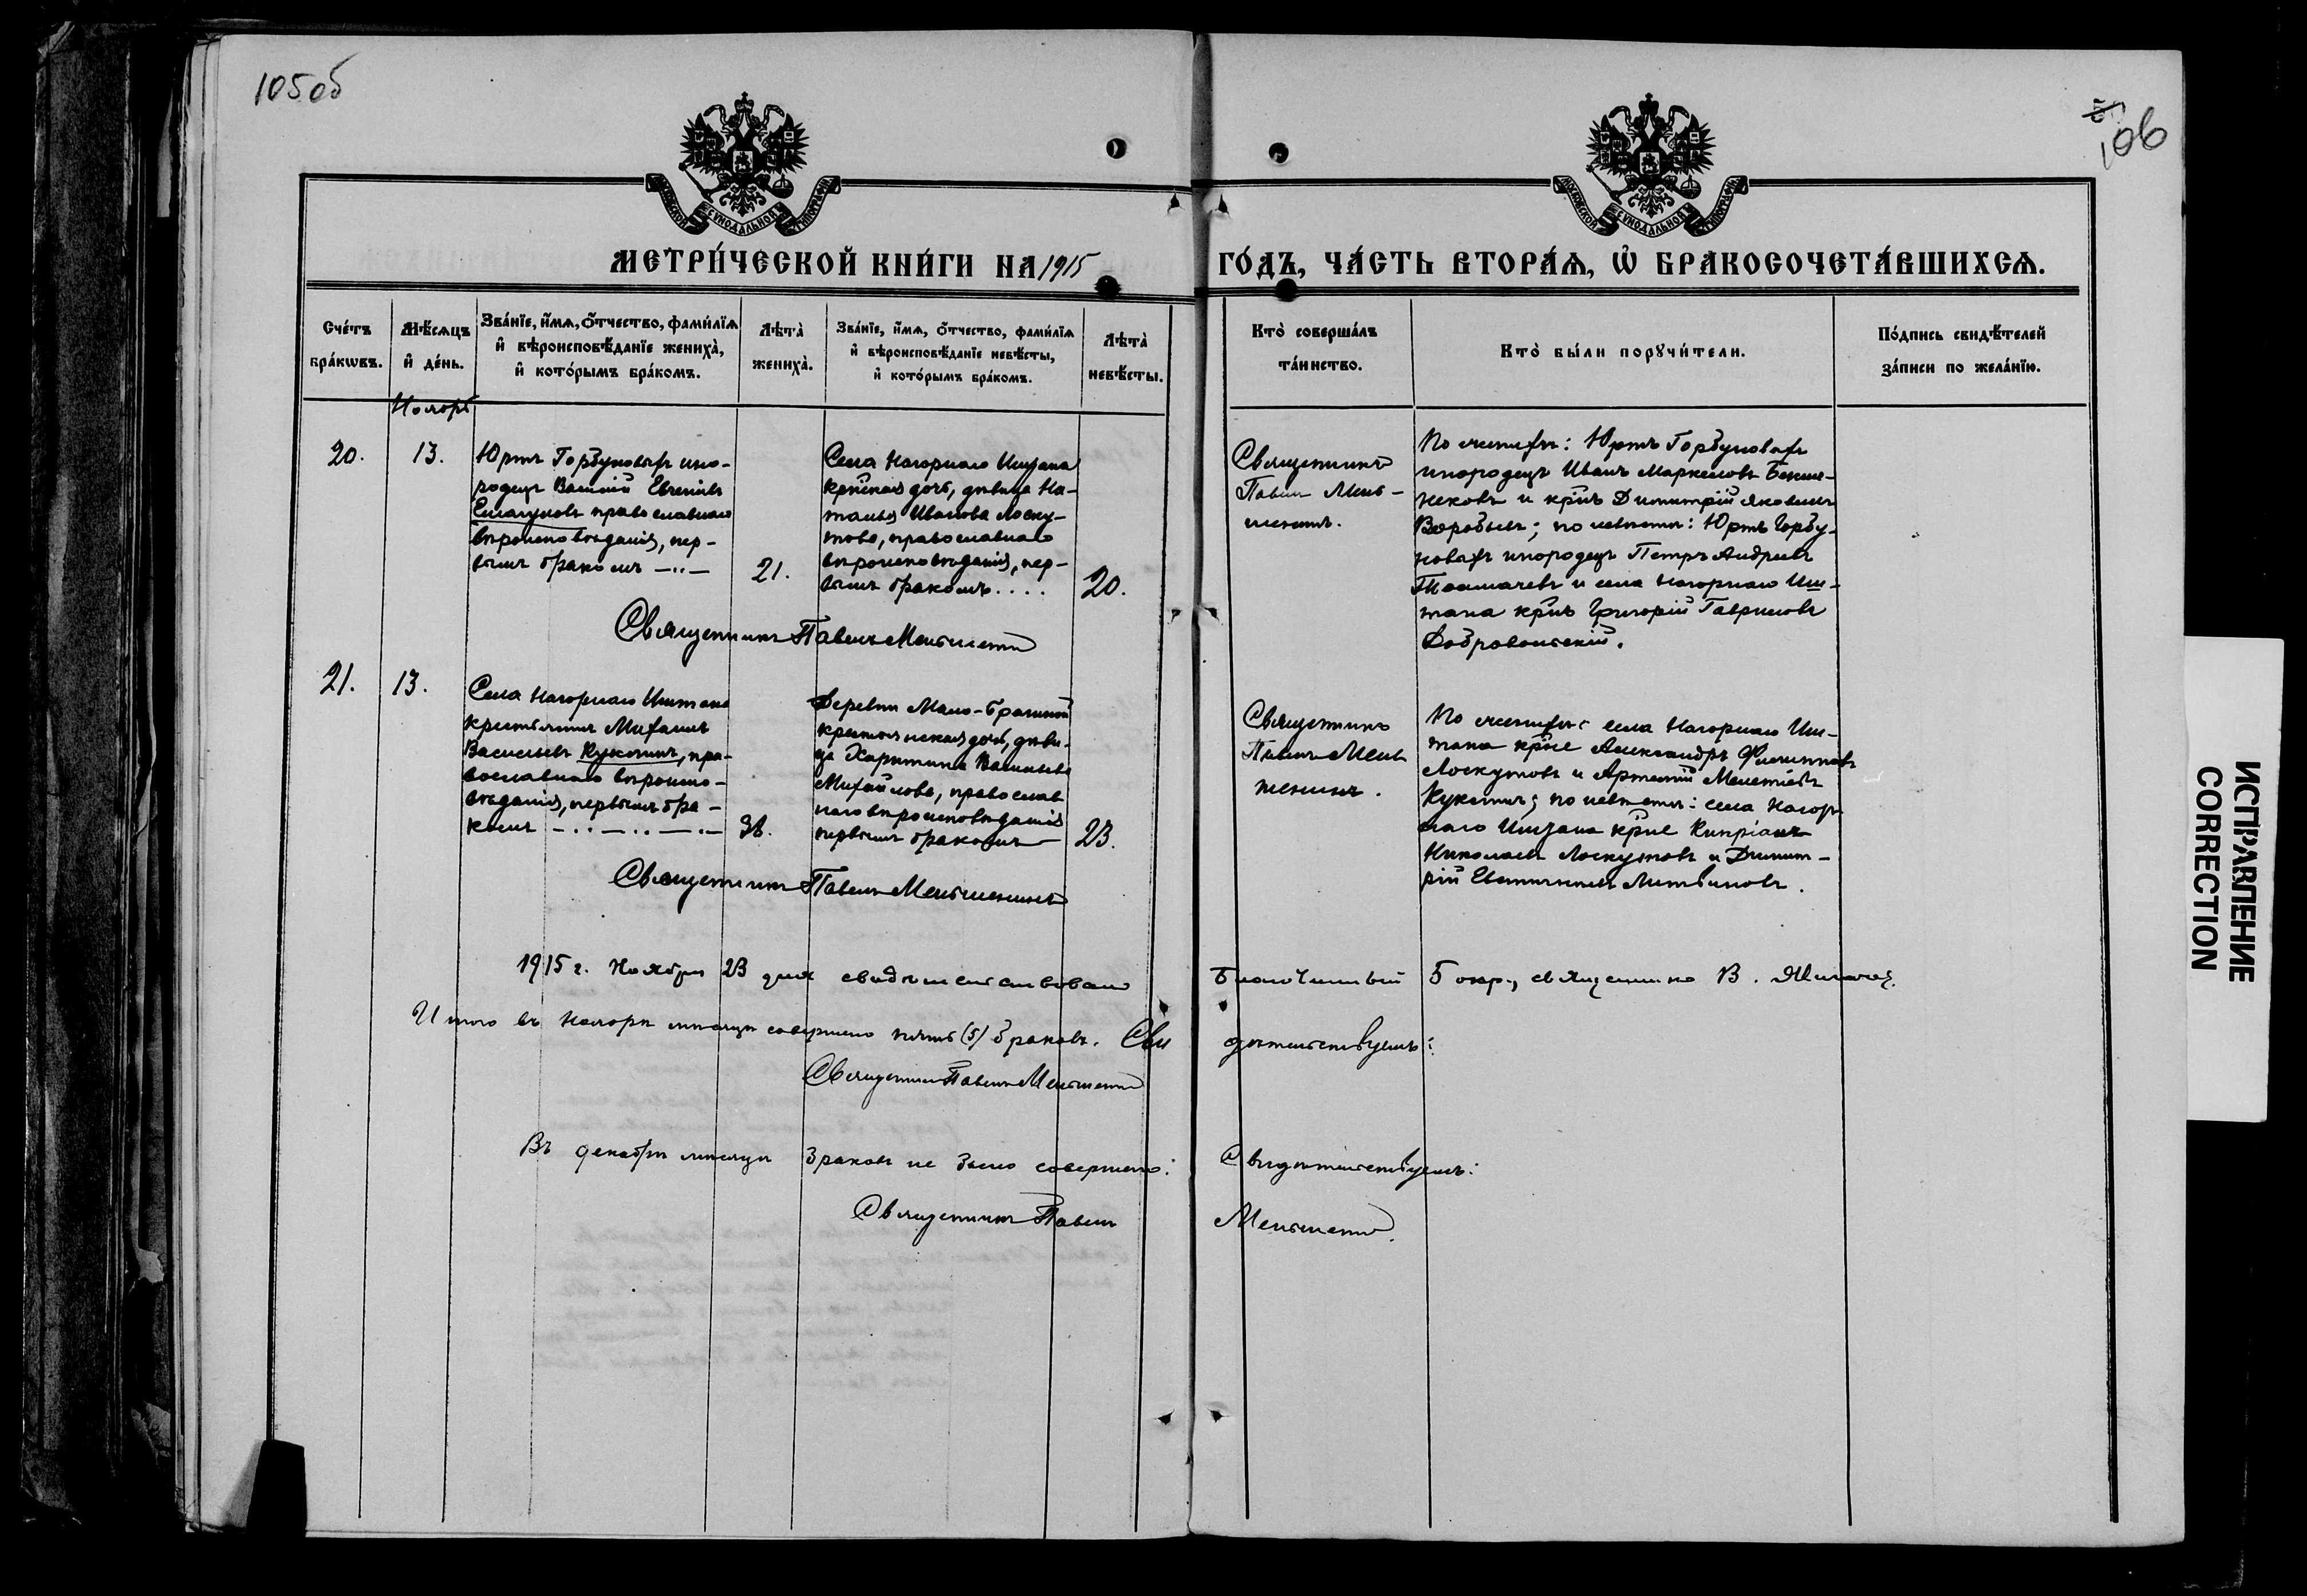 105 об
106
МОСКОВСКОЙ СѴНОДАЛЬНОЙ ТИПОГРАФІИ
МОСКОВСКОЙ СѴНОДАЛЬНОЙ ТИПОГРАФІИ
МЕТРИ́ЧЕСКОЙ КНИ́ГИ НА 1915 ГО́ДЪ, ЧА́СТЬ ВТОРА́Ѧ, Ѽ БРАКОСОЧЕТА́ВШИХСѦ.
Сче́тъ
бра́кѡвъ.
Мѣ́сѧцъ
и҆ де́нь.
Зва́нїе, и҆́мѧ, ѻ҆́тчество, фами́лїѧ
и҆ вѣроисповѣ́данїе жениха̀,
и҆ кото́рымъ бра́комъ.
Лѣта̀
жениха̀.
Зва́нїе, и҆́мѧ, ѻ҆́тчество, фами́лїѧ
и҆ вѣроисповѣ́данїе невѣ́сты,
и҆ кото́рымъ бра́комъ.
Лѣта̀
невѣ́сты.
Кто̀ соверша́лъ
та́инство.
Кто̀ бы́ли порꙋчи́тели.
По́дпись свидѣ́телей
за́писи по жела́нїю.
Ноябрь
20.
13.
Юртъ Горбуновыхъ ино-
родецъ Василій Евгеніевъ
православнаго
вѣроисповѣданія, пер-
вымъ бракомъ
21.
Села Нагорнаго Иштана
крестьянская дочь, дѣвица На-
талья Иванова Лоску-
това, православнаго
вѣроисповѣданія, пер-
вымъ бракомъ....
20.
Священникъ
Павелъ Мень-
шенинъ.
По женихѣ: Юртъ Горбуновыхъ
инородецъ Иванъ Маркеловъ
и крнъ Димитрій Яковлевъ
Воробьевъ; по невѣстѣ: Юртъ Горбу-
новыхъ инородецъ Петръ Андреевъ
Толмачевъ и села Нагорнаго Иш-
тана крнъ Григорій Гавриловъ
Добровольскій.
Священникъ Павелъ Меньшенинъ
21.
13.
Села Нагорнаго Иштана
крестьянинъ Михаилъ
Васильевъ Кукотинъ, пра-
вославнаго вѣроиспо-
вѣданія, первымъ бра-
комъ
Деревни Мало-Брагиной
крестьянская дочь, дѣви-
ца Харитина Васильева
Михайлова, православ
наго вѣроисповѣданія
первымъ бракомъ
23.
Священникъ
Павелъ Мень
шенинъ.
По женихѣ: села Нагорнаго Иш-
тана крне Александръ Филипповъ
Лоскутовъ и Артемій Мелетіевъ
Кукотинъ; по невѣстѣ: села Нагор-
наго Иштана крне Кипріанъ
Николаевъ Лоскутовъ и Димит-
рій Литвиновъ.
Священникъ Павелъ Меньшенинъ
1915 г. Ноября 23 дня свидѣтельствовалъ Благочинный 5 окр., священникъ В.
Итого въ Ноябрѣ мѣсяцѣ совершено пять (5) браковъ. Сви дѣтельствуемъ:
Священникъ Павелъ Меньшенинъ
Въ декабрѣ мѣсяцѣ браковъ не было совершено: Свидѣтельствуемъ:
Священникъ Павелъ Меньшенинъ.
ИСПРАВЛЕНИЕ
CORRECTION